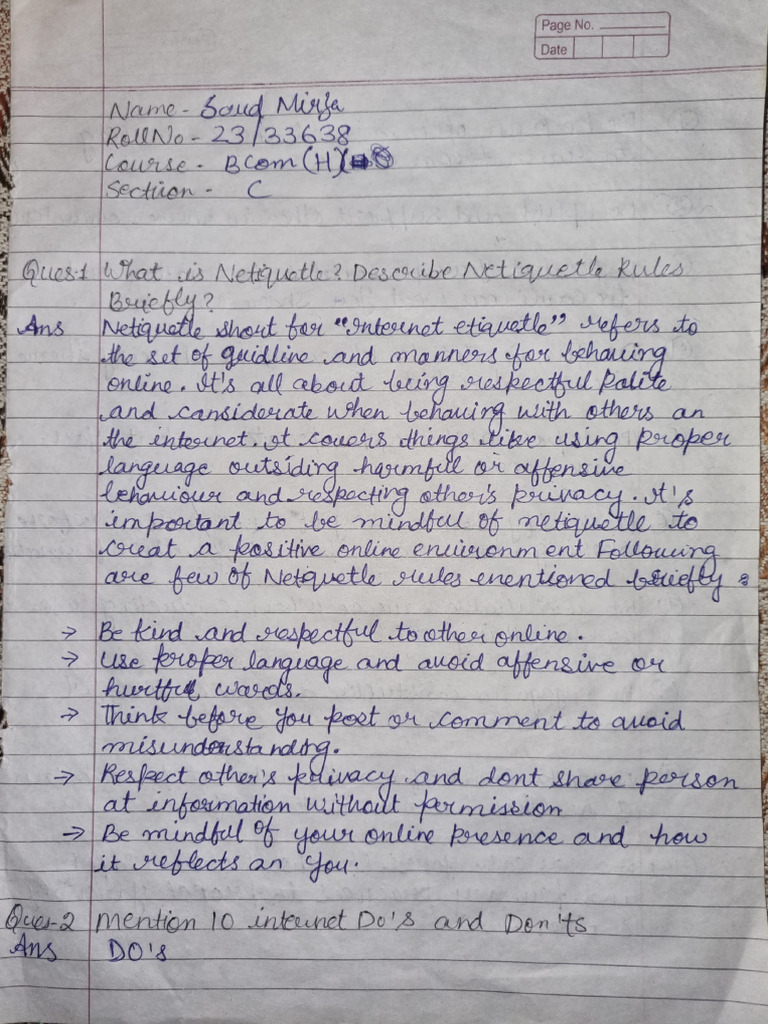 Page No.
Date
Name - Saud Mirza
Roll No - 23/33638
Course - BCom (H)
Section - C
Ques-1 What is Netiquetle? Describe Netiquetle Rules
Briefly?
Ans Netiquetle short for "Internet etiquetle" refers to
the set of guidline and manners for behaving
online. It's all about being respectful Polite
and considerate when behaving with others on
the internet. It covers things like using proper
language outsiding harmful or offensive
behaviour and respecting other's privacy. It's
important to be mindful of netiquetle to
creat a positive online environment Following
are few of Netiquetle rules mentioned briefly :
→ Be kind and respectful to other online.
→ Use proper language and avoid offensive or
hurtful words.
→ Think before you post or comment to avoid
misunderstanding.
→ Respect other's privacy and dont share person
at information without permission
→ Be mindful of your online presence and how
it reflects on You.
Ques-2 Mention 10 internet Do's and Don'ts
Ans DO's